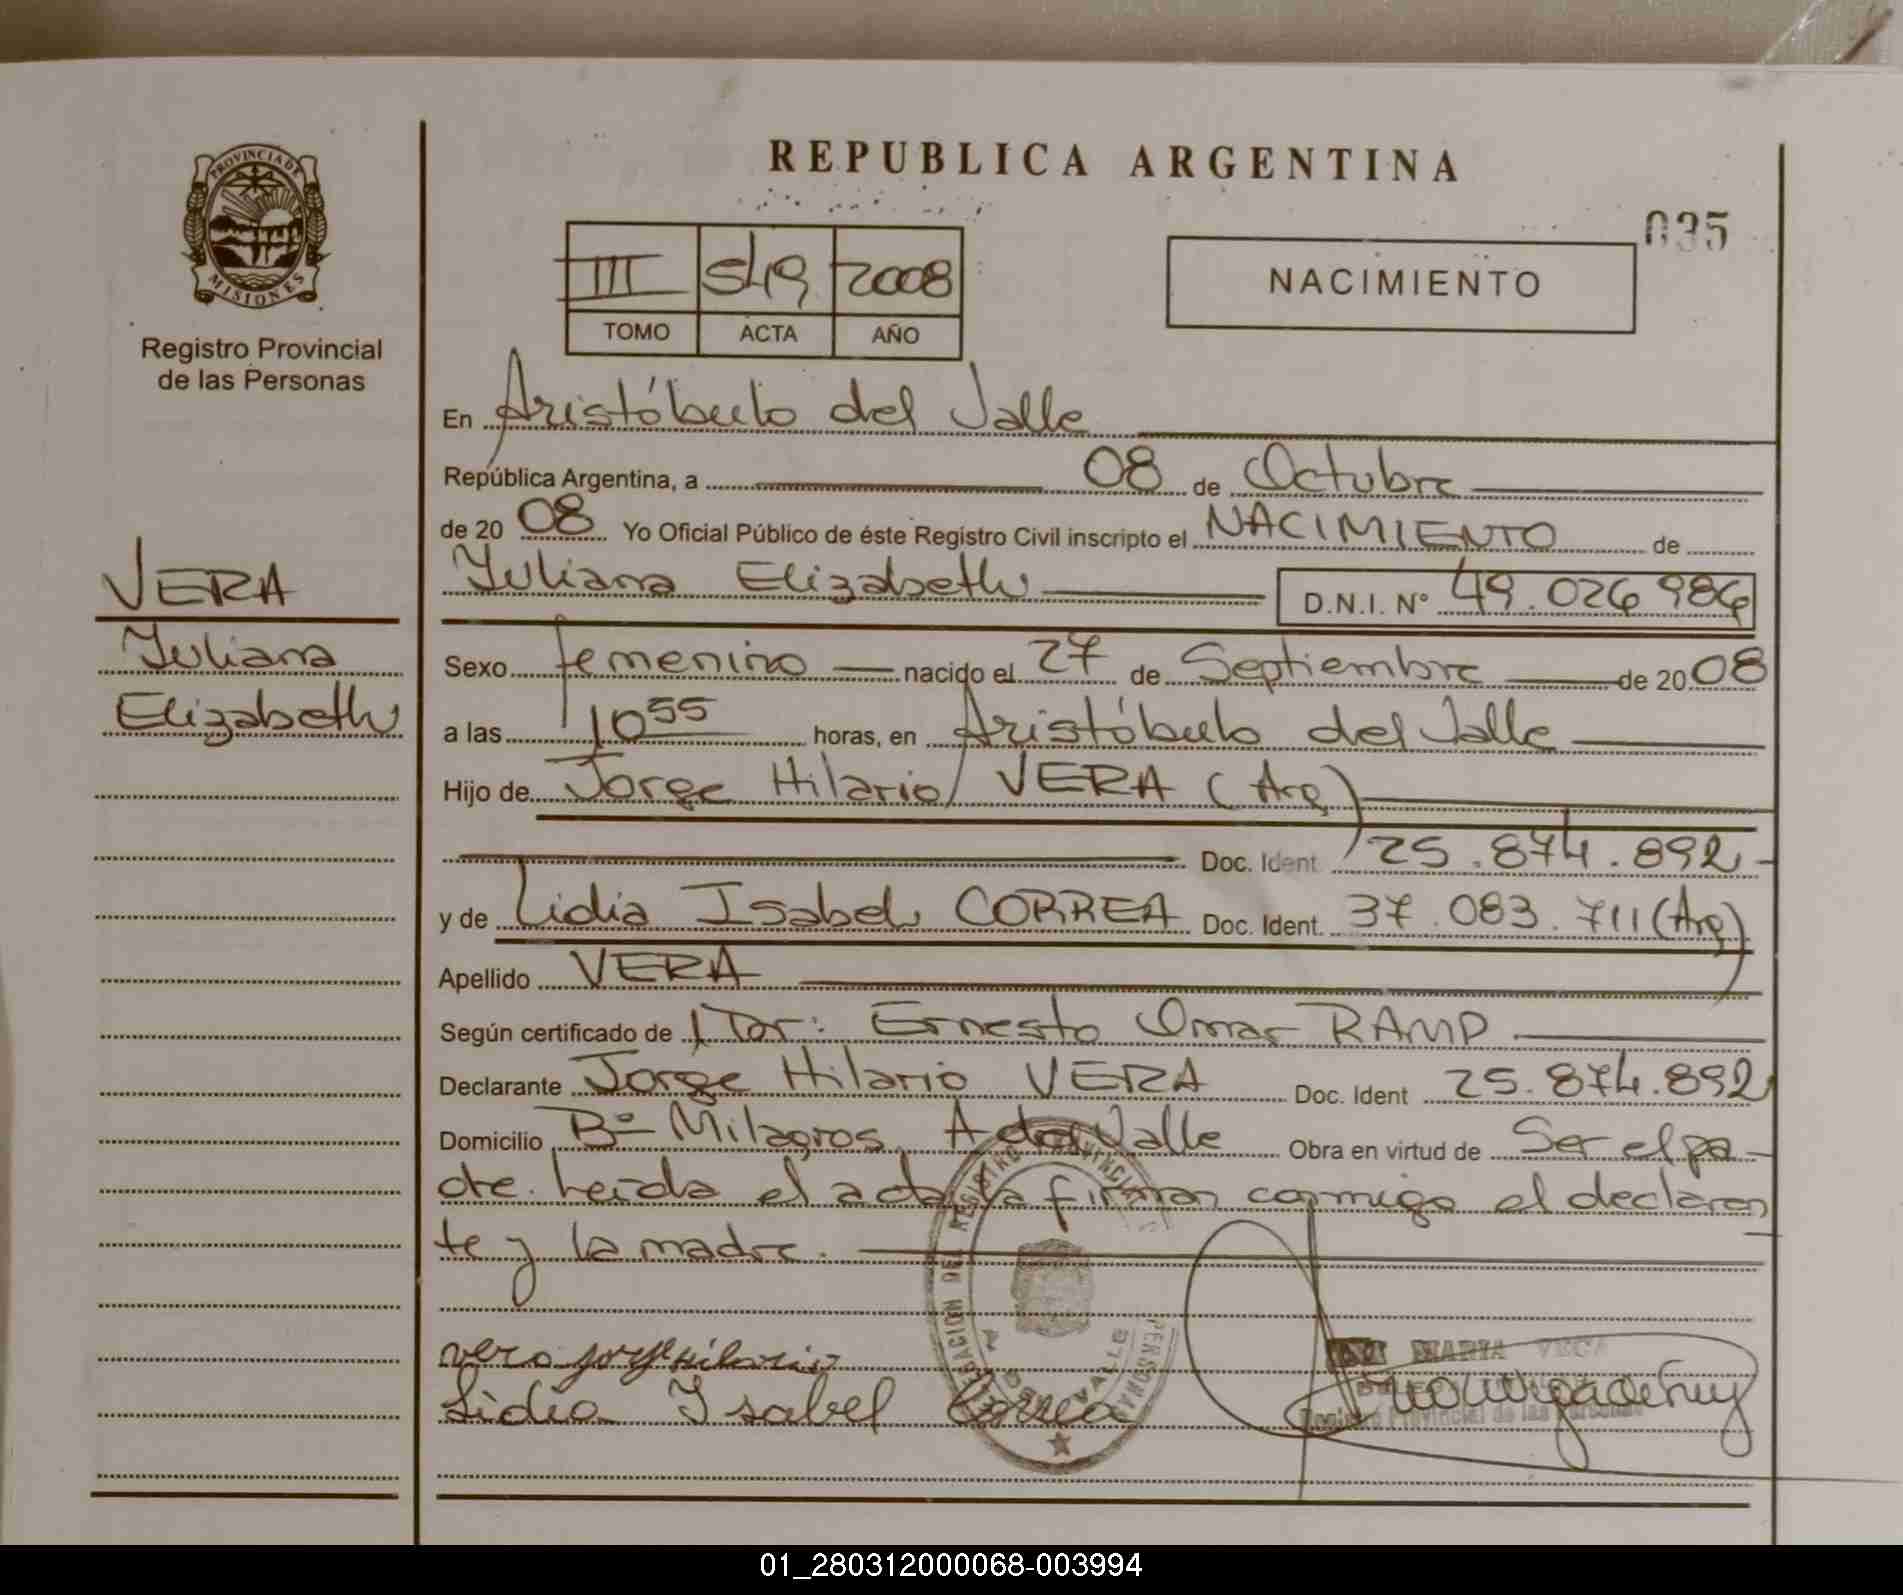 REPUBLICA ARGENTINA
035
PROVINCIA DE
MISIONES
Registro Provincial
de las Personas
III 549 2008
TOMO ACTA AÑO
NACIMIENTO
En Aristóbulo del Valle
República Argentina, a 08 de Octubre
de 20 08 Yo Oficial Público de éste Registro Civil inscripto el NACIMIENTO de
Yuliana Elizabeth D.N.I. N° 49.026.986
VERA
Yuliana
Elizabeth
Sexo femenino nacido el 27 de Septiembre de 20 08
a las 10 55 horas, en Aristóbulo del Valle
Hijo de Jorge Hilario VERA (Arg)
Doc. Ident 25.874.892
y de Lidia Isabel CORREA Doc. Ident. 37.083.711 (Arg)
Apellido VERA
Según certificado de Dr: Ernesto Omar RAMP
Declarante Jorge Hilario VERA Doc. Ident 25.874.892
Domicilio B° Milagros, A del Valle Obra en virtud de Ser el pa-
dre. Leída el acta la firman conmigo el declaran
te y la madre.
vera jorge hilario
Lidia Ysabel Correa
DELEGACION DEL REGISTRO PROVINCIAL PERSONAS
A. DEL VALLE
MARIA
Registro Provincial de las Personas
01_280312000068-003994